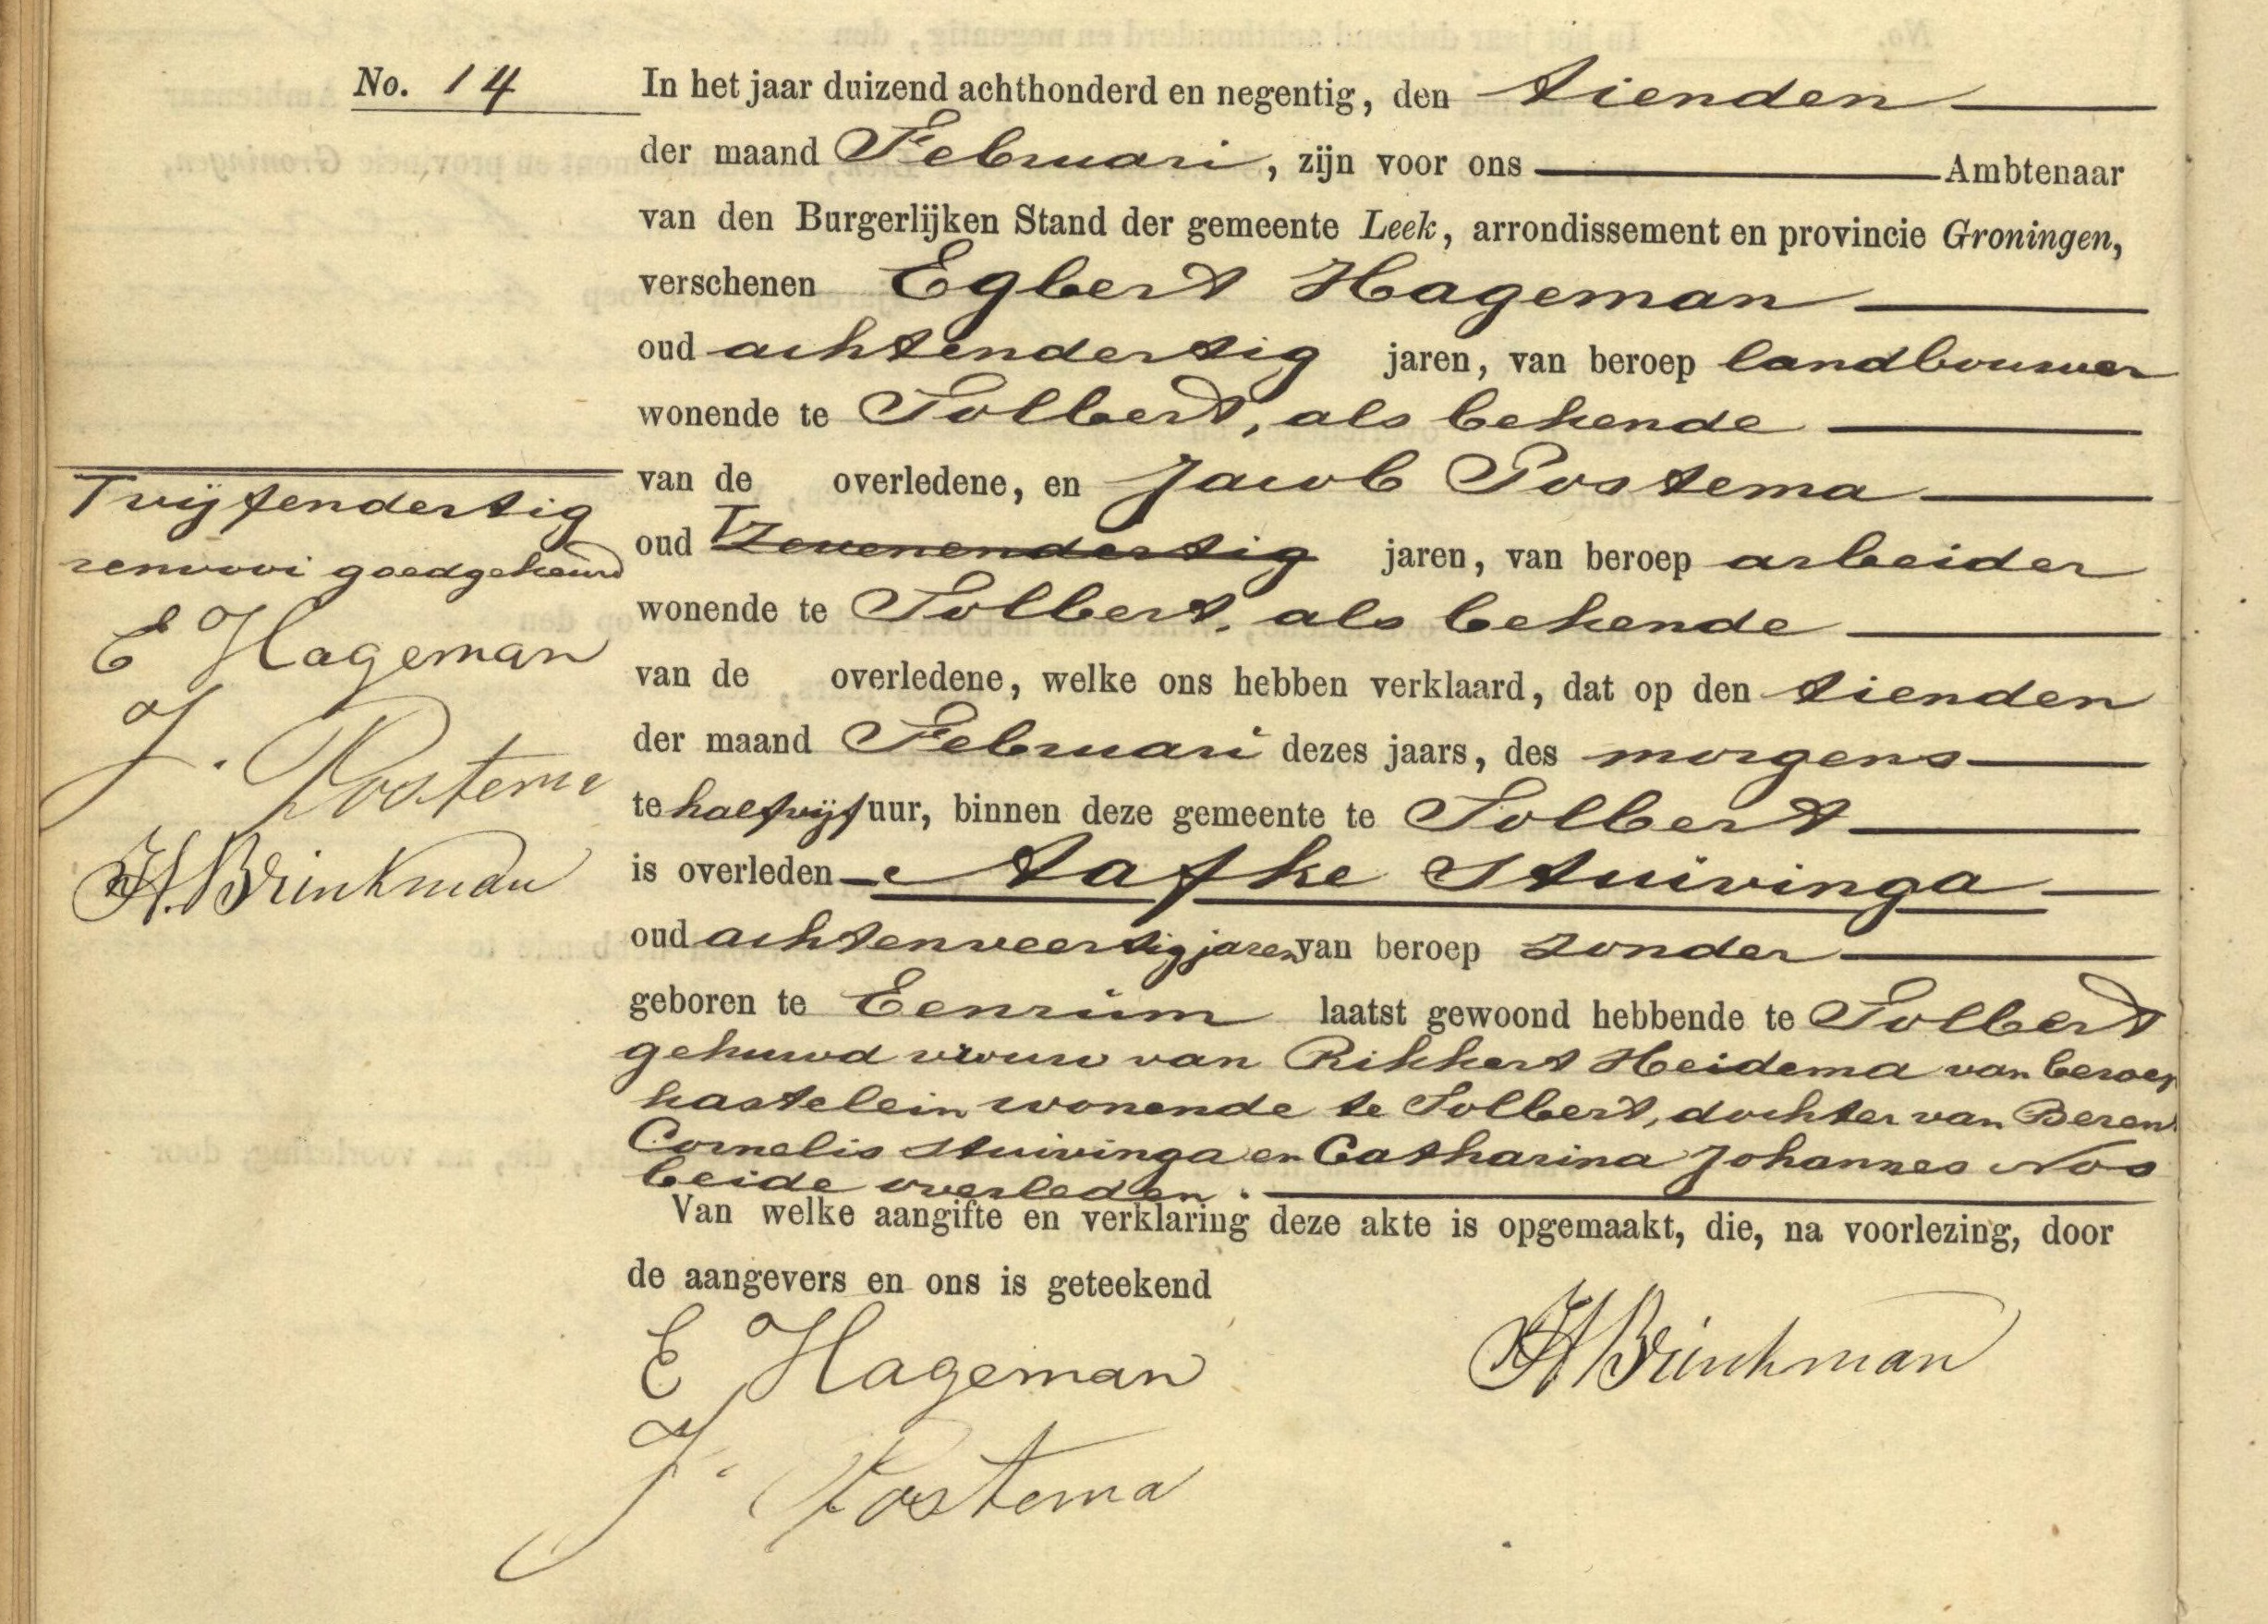 No. 14
In het jaar duizend achthonderd en negentig, den tienden
der maand Februari, zijn voor ons Ambtenaar
van den Burgerlijken Stand der gemeente Leek, arrondissement en provincie Groningen,
verschenen Egbert Hageman
oud achtendertig jaren, van beroep landbouwer
wonende te Tolbert, als bekende
van de overledene, en Jacob Postema
oud Zevenendertig jaren, van beroep arbeider
wonende te Tolbert, als bekende
van de overledene, welke ons hebben verklaard, dat op den tienden
der maand Februari dezes jaars, des morgens
te halfvijf uur, binnen deze gemeente te Tolbert
is overleden Aafke Stuivinga
oud achtenveertig jaren van beroep zonder
geboren te Eenrum laatst gewoond hebbende te Tolbert
gehuwd vrouw van Rikkert Heidema van beroep
kastelein wonende te Tolbert, dochter van Berend
Cornelis Stuivinga en Catharina Johannes Nos
beide overleden.
Van welke aangifte en verklaring deze akte is opgemaakt, die, na voorlezing, door
de aangevers en ons is geteekend
E Hageman
J. Postema
H. Brinkman
vijfendertig
renvooi goedgekeurd
E Hageman
J. Postema
H. Brinkman